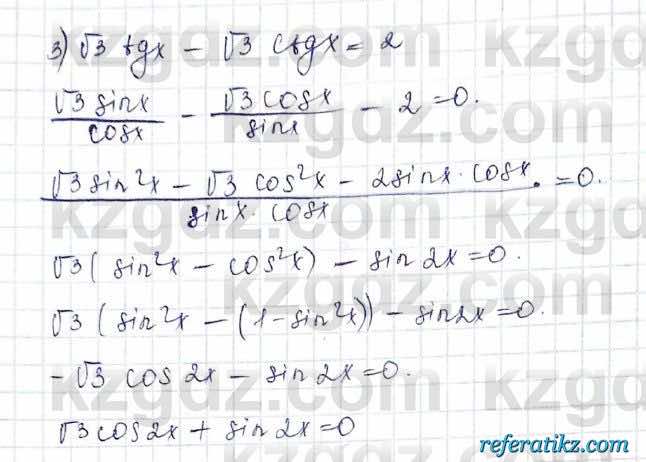 3) √3 tgx − √3 ctgx = 2
√3 sinx/cosx − √3 cosx/sinx − 2 = 0.
(√3 sin²x − √3 cos²x − 2sinx · cosx)/(sinx · cosx) = 0.
√3 (sin²x − cos²x) − sin 2x = 0.
√3 (sin²x − (1 − sin²x)) − sin2x = 0.
−√3 cos 2x − sin 2x = 0.
√3 cos2x + sin 2x = 0
referatikz.com
kzgdz.com